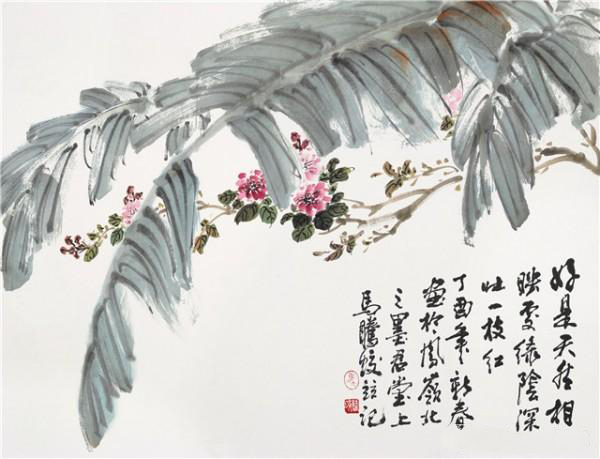 好是天然相
映處綠陰深
吐一枝红
丁酉年新春
畫於鳳嶺北
之墨君堂上
馬騰蛟並记